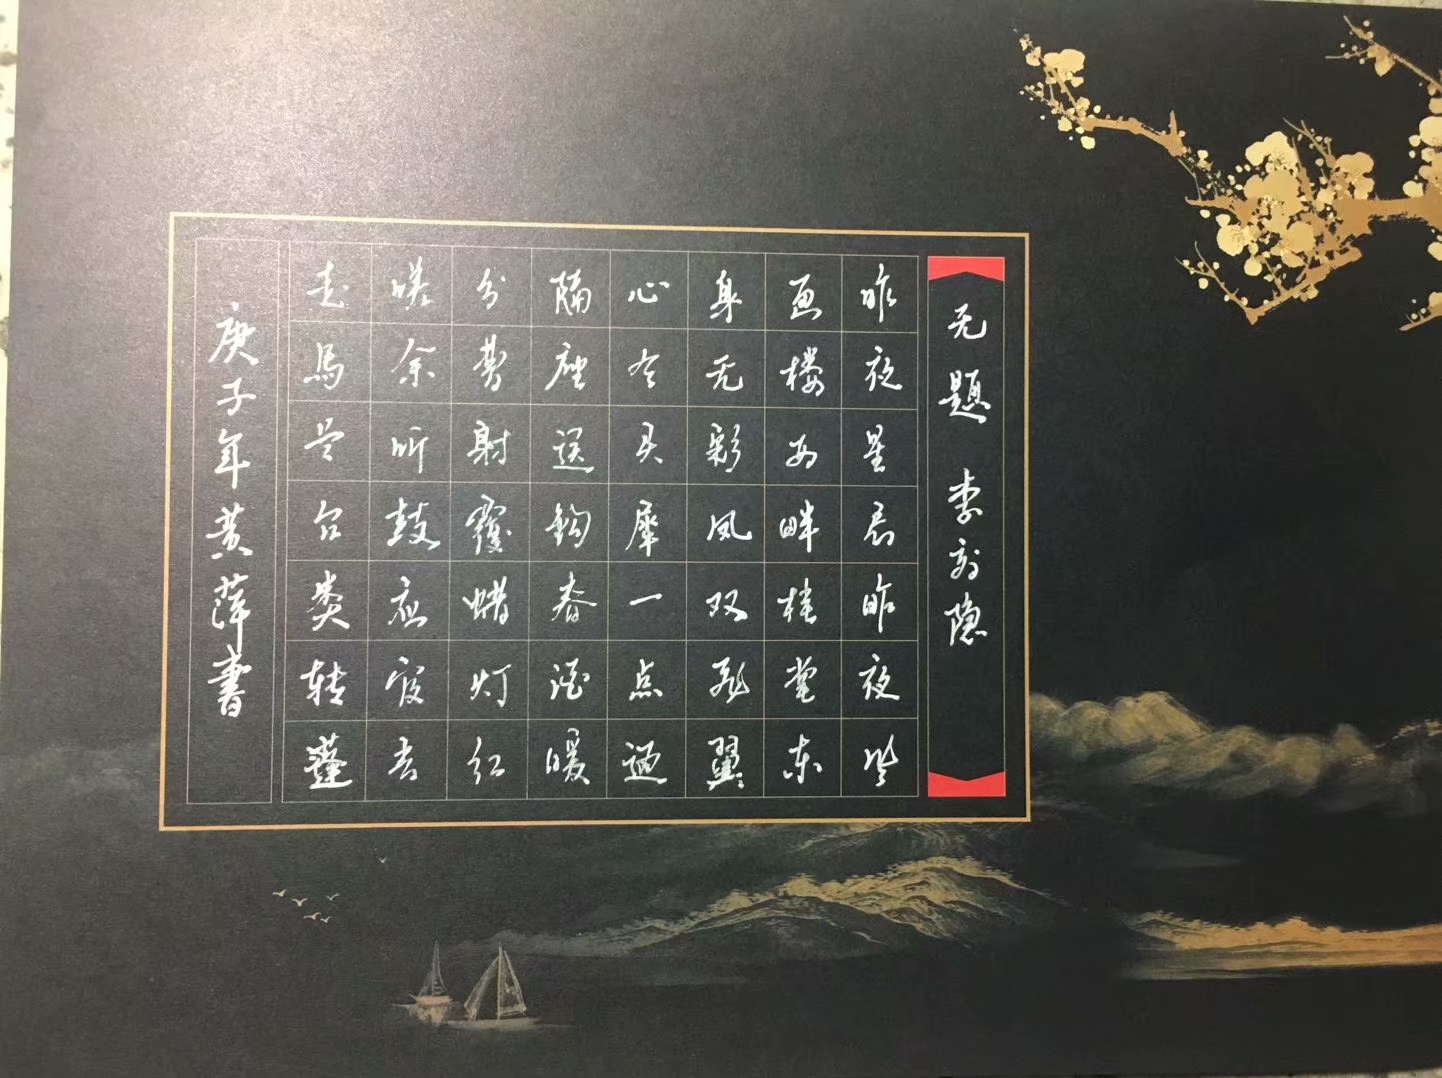 无题 李商隐
昨夜星辰昨夜风
画楼西畔桂堂东
身无彩凤双飞翼
心有灵犀一点通
隔座送钩春酒暖
分曹射覆蜡灯红
嗟余听鼓应官去
走馬兰台类转蓬
庚子年黄萍書